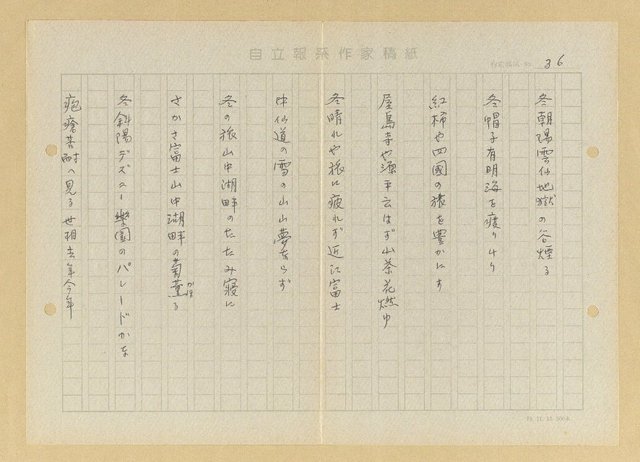 自立報系作家稿紙
36
冬朝陽雲仙地獄の谷煙る
冬帽子有明海を渡り
紅柿や四國の旅を豊かにす
屋島寺や源平云はず山茶花燃ゆ
冬晴れや旅に疲れず近江富士
中仙道の雪の山山夢ならず
冬の旅山中湖畔のたたみ寝に
さかさ富士山中湖畔の菊薫る
冬斜陽デズニー樂園のパレードかな
疱瘡苦耐へ見る世相去年今年